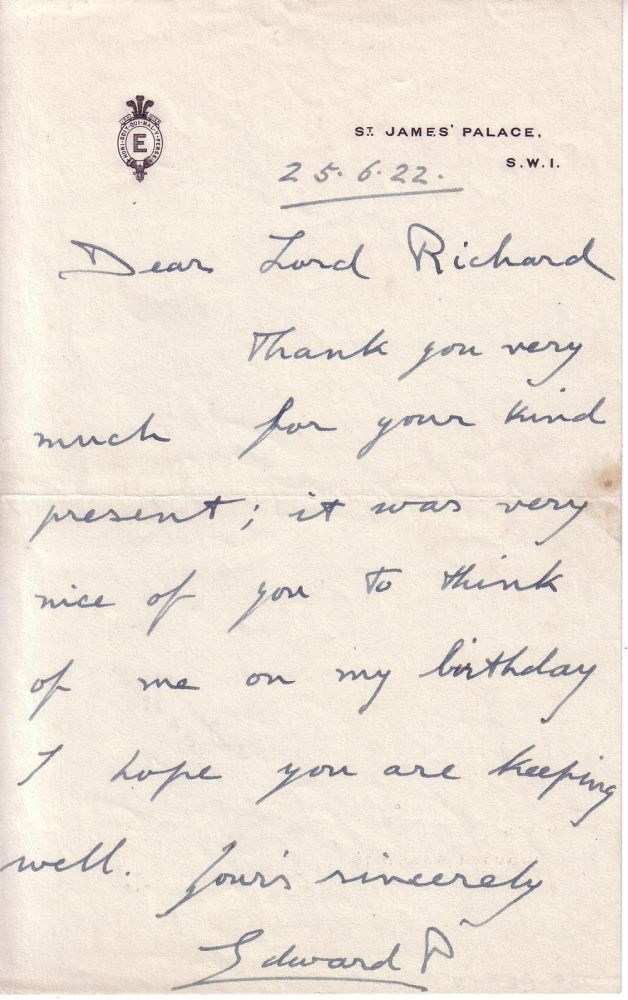 HONI·SOIT·QUI·MAL·Y·PENSE
E
ST. JAMES' PALACE,
S.W.1.
25.6.22.
Dear Lord Richard
Thank you very
much for your kind
present; it was very
nice of you to think
of me on my birthday
I hope you are keeping
well. Your's sincerely
Edward P